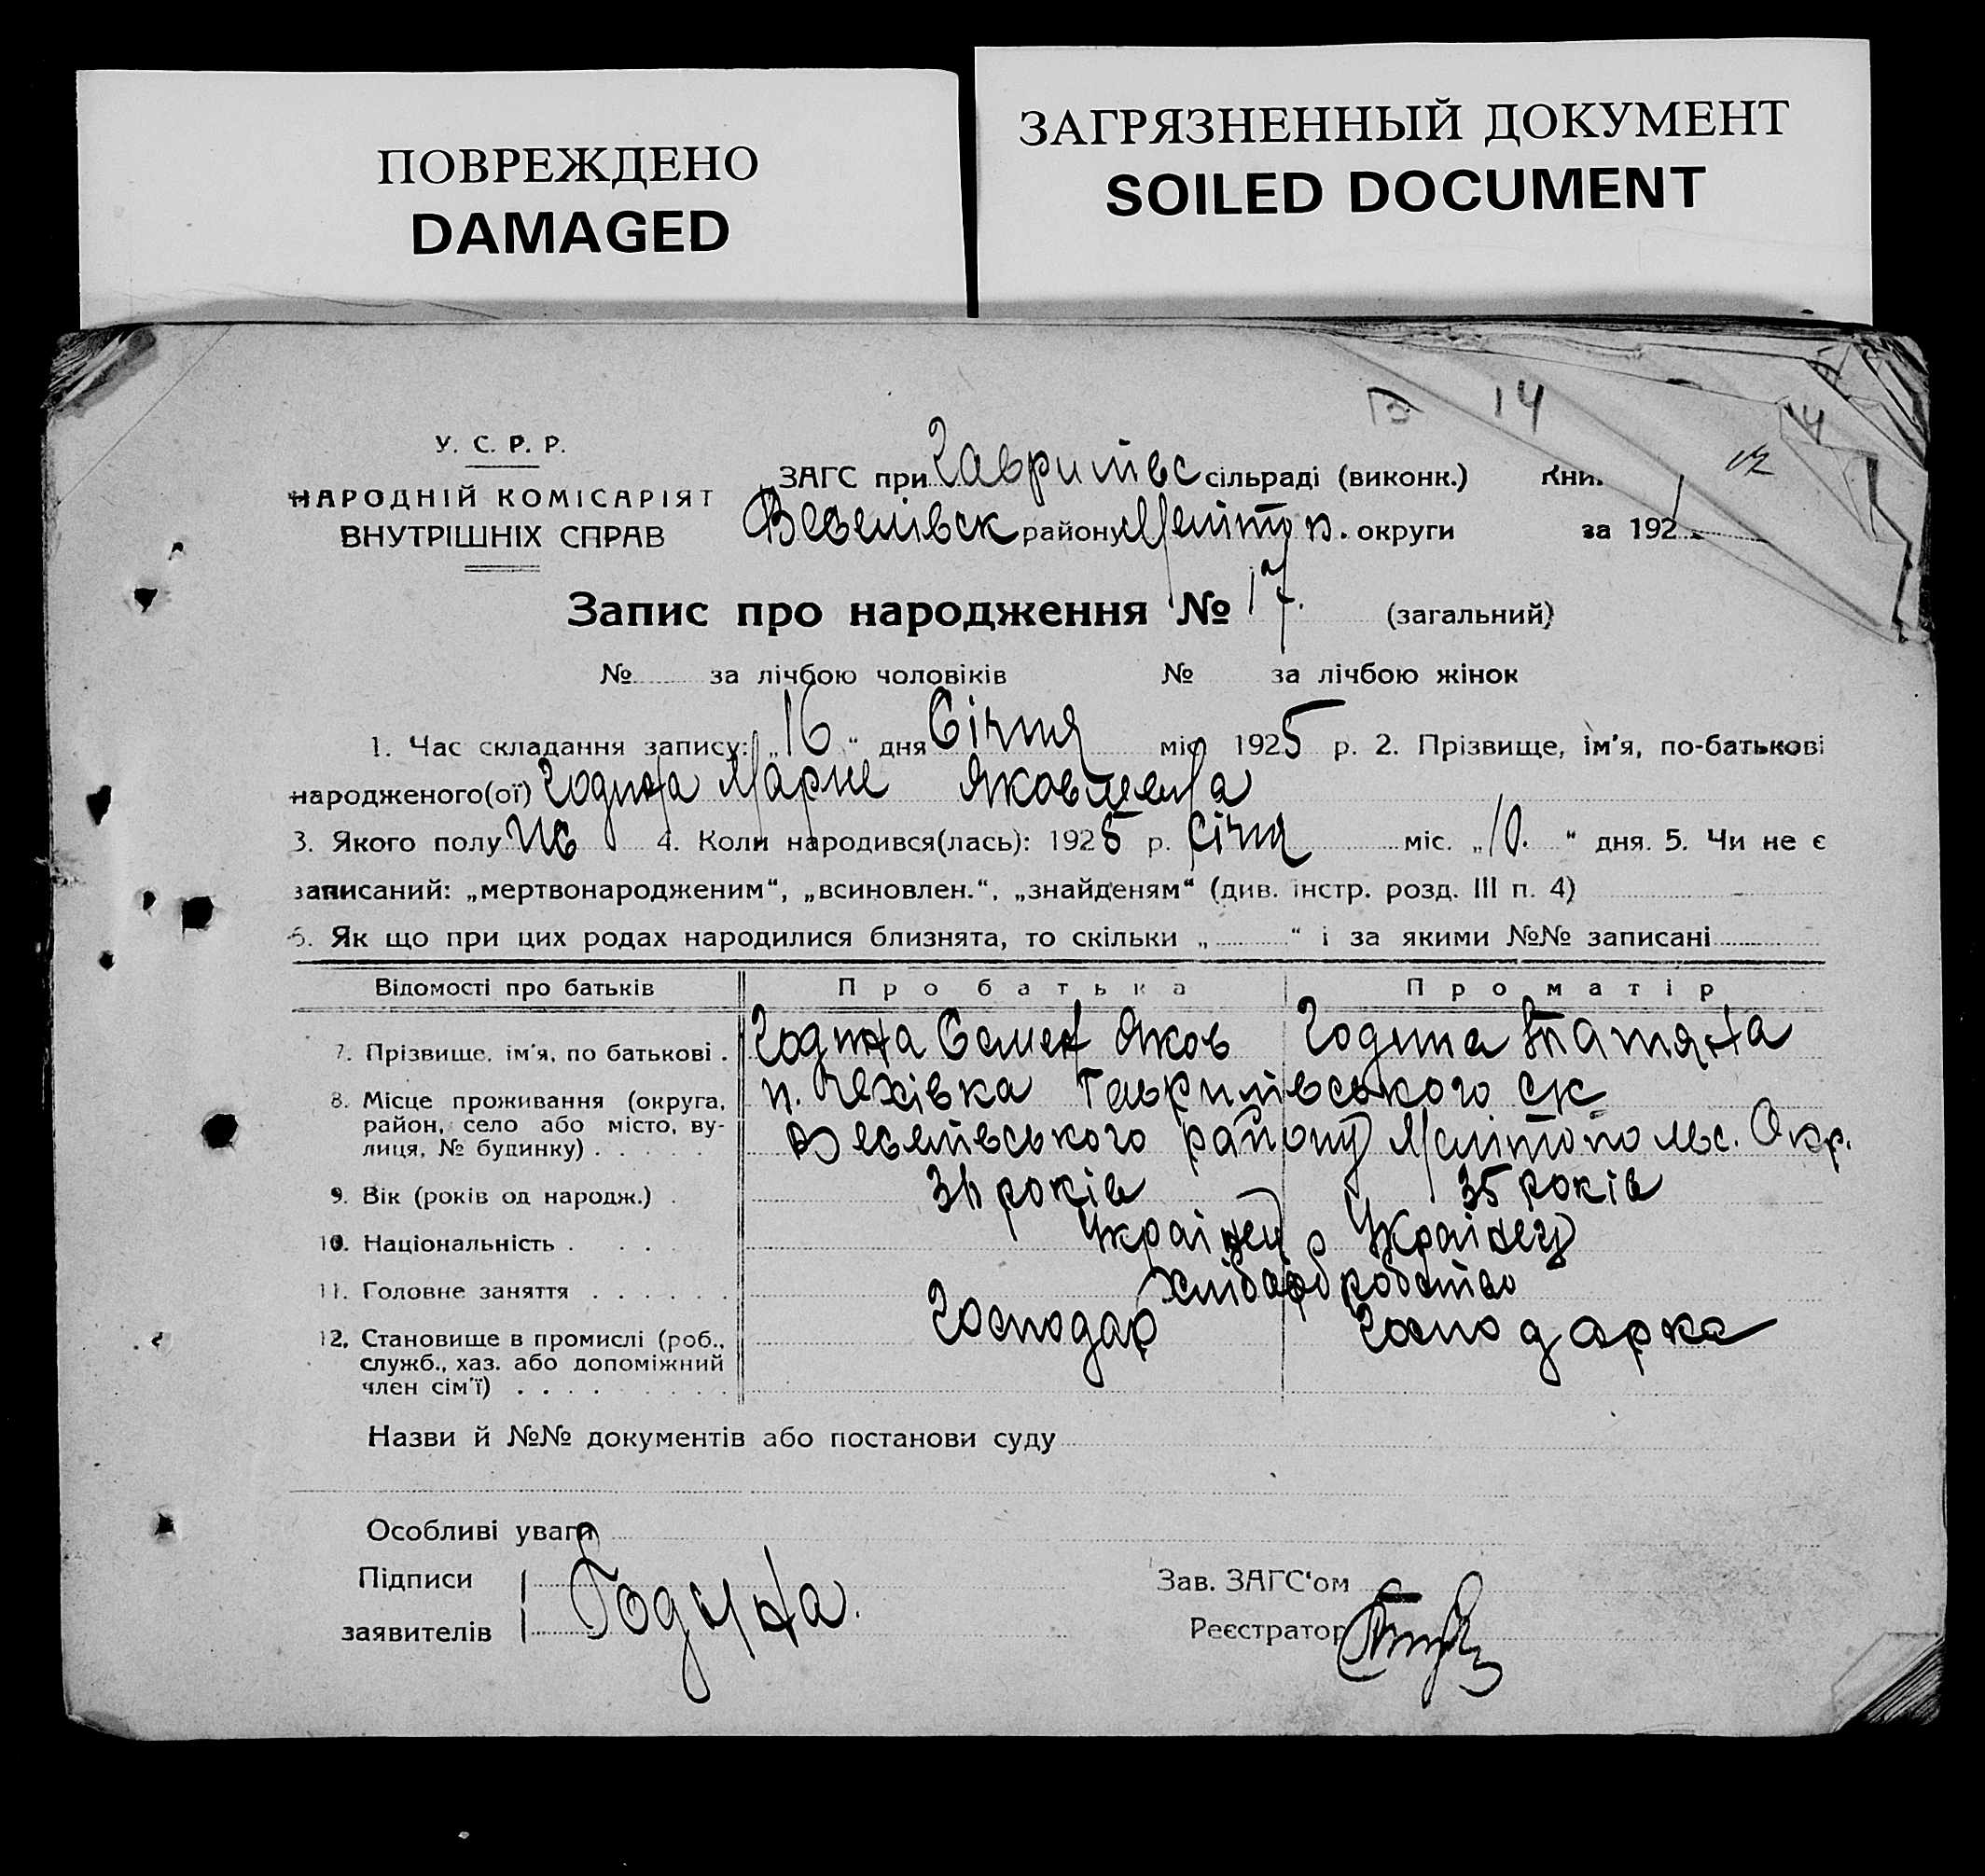 ПОВРЕЖДЕНО
DAMAGED
ЗАГРЯЗНЕННЫЙ ДОКУМЕНТ
SOILED DOCUMENT
14
У. С. Р. Р.
НАРОДНІЙ КОМІСАРІЯТ
ВНУТРІШНІХ СПРАВ
ЗАГС при Гаврилівс сільраді (виконк.)
Веселівск району Мелітоп. округи за 192
Запис про народження № 17. (загальний)
№ за лічбою чоловіків № за лічбою жінок
1. Час складання запису: „16“ дня Січня міс 1925 р. 2. Прізвище, ім'я, по-батькові
народженого(ої) Годына
3. Якого полу 4. Коли народився(лась): 1925 р. січня міс. „10.“ дня. 5. Чи не є
записаний: „мертвонародженим“, „всиновлен.“, „знайденям“ (див. інстр. розд. III п. 4)
6. Як що при цих родах народилися близнята, то скільки „ “ і за якими №№ записані
Відомості про батьків Про батька Про матір
7. Прізвище, ім'я, по батькові . Годына Семен Яков Годына Татяна
8. Місце проживання (округа, п. Чехівка Гаврилівського ск
район, село або місто, ву- Веселівського району Мелітопольс. Окр.
лиця, № будинку) . . . . .
9. Вік (років од народж.) . років 35 років
10. Національність . . . . Українец Українец
11. Головне заняття . . . . . . хлібороб
12. Становище в промислі (роб., Господар Господарка
служб., хаз. або допоміжний
член сім'ї) . . . . . . . .
Назви й №№ документів або постанови суду
Особливі уваги
Підписи
заявителів Годуна.
Зав. ЗАГС'ом
Реєстратор